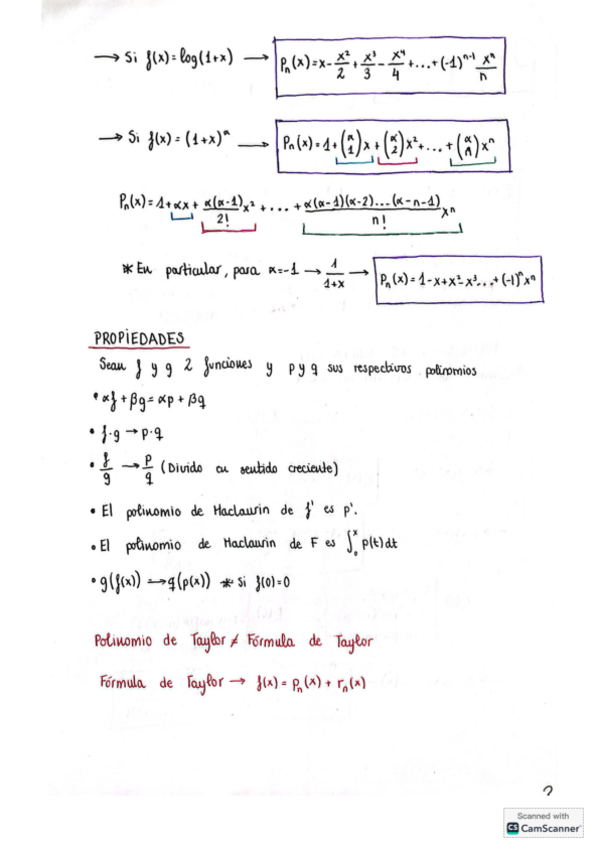 → Si f(x) = log(1+x) → Pn(x) = x - x²/2 + x³/3 - x⁴/4 + ... + (-1)ⁿ⁻¹ xⁿ/n
→ Si f(x) = (1+x)^α → Pn(x) = 1 + (α 1)x + (α 2)x² + ... + (α n)xⁿ
Pn(x) = 1 + αx + α(α-1)/2! x² + ... + α(α-1)(α-2)...(α-n-1)/n! xⁿ
* En particular, para α=-1 → 1/1+x → Pn(x) = 1 - x + x² - x³... + (-1)ⁿ xⁿ
PROPIEDADES
Sean f y g 2 funciones y p y q sus respectivos polinomios
• αf + βg = αp + βq
• f·g → p·q
• f/g → p/q (Divido en sentido creciente)
• El polinomio de Maclaurin de f' es p'.
• El polinomio de Maclaurin de F es ∫₀ˣ p(t)dt
• g(f(x)) → q(p(x)) * Si f(0)=0
Polinomio de Taylor ≠ Fórmula de Taylor
Fórmula de Taylor → f(x) = Pn(x) + rn(x)
2
Scanned with
CS CamScanner